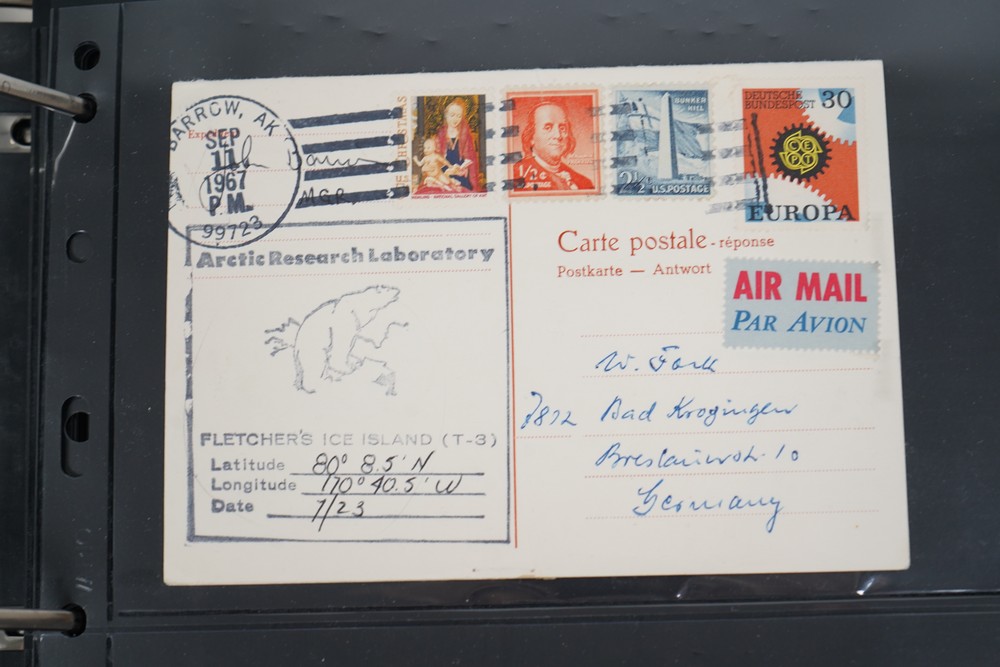 BARROW, AK
SEP
11
1967
P.M.
99723
MGR,
U.S. CHRISTMAS
1/2¢
U.S. POSTAGE
BUNKER
HILL
2½¢
U.S. POSTAGE
DEUTSCHE
BUNDESPOST 30
CEPT
EUROPA
Arctic Research Laboratory
FLETCHER'S ICE ISLAND (T-3)
Latitude 80° 8.5' N
Longitude 170° 40.5' W
Date 7/23
Carte postale - réponse
Postkarte — Antwort
AIR MAIL
PAR AVION
W. Fark
7812 Bad Krozingen
Breslauerstr. 10
Germany